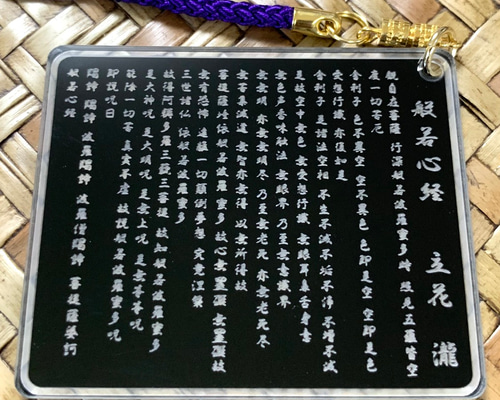 般若心経 立花 瀧
観自在菩薩 行深般若波羅蜜多時 照見五蘊皆空
度一切苦厄
舎利子 色不異空 空不異色 色即是空 空即是色
受想行識 亦復如是
舎利子 是諸法空相 不生不滅不垢不浄不増不減
是故空中無色 無受想行識 無眼耳鼻舌身意
無色声香味触法 無眼界 乃至無意識界
無無明 亦無無明尽 乃至無老死 亦無老死尽
無苦集滅道 無智亦無得 以無所得故
菩提薩埵 依般若波羅蜜多 故心無罣礙 無罣礙故
無有恐怖 遠離一切顛倒夢想 究竟涅槃
三世諸仏 依般若波羅蜜多
故得阿耨多羅三藐三菩提 故知般若波羅蜜多
是大神呪 是大明呪 是無上呪 是無等等呪
能除一切苦 真実不虚 故説般若波羅蜜多呪
即説呪曰
羯諦 羯諦 波羅羯諦 波羅僧羯諦 菩提薩婆訶
般若心経